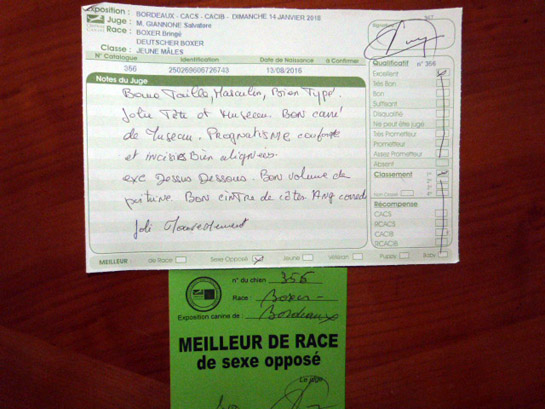 Exposition : BORDEAUX - CACS - CACIB - DIMANCHE 14 JANVIER 2018
Juge : M. GIANNONE Salvatore
Race : BOXER Bringé
DEUTSCHER BOXER
Classe : JEUNE MÂLES
N° Catalogue Identification Date de Naissance à Confirmer
356 250269606726743 13/08/2016
Notes du Juge
Bonne Taille, Masculin, Bien Typé.
Jolie Tête et Museau. Bon carré
de Museau. Prognatisme conforme
et incisives Bien alignées
exc Dessus Dessous. Bon volume de
poitrine Bon cintre de côtes Ang correct
Joli Mouvement
MEILLEUR : de Race Sexe Opposé Jeune Vétéran Puppy Baby
Signature
Qualificatif n° 356
Excellent
Très Bon
Bon
Suffisant
Disqualifié
Ne peut être jugé
Très Prometteur
Prometteur
Assez Prometteur
Absent
Classement
Non Classé
Récompense
CACS
RCACS
CACIB
RCACIB
n° du chien : 356
Race : Boxer -
Exposition canine de : Bordeaux
MEILLEUR DE RACE
de sexe opposé
Le juge